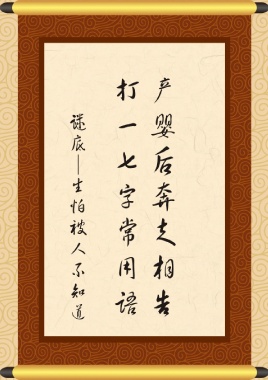 产婴后奔走相告
打一七字常用语
谜底——生怕被人不知道